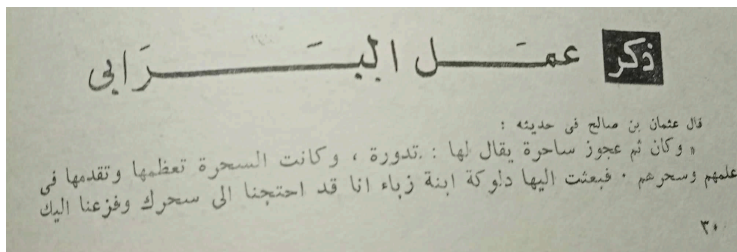 ذكر عمل البرَابى
قال عثمان بن صالح فى حديثه :
« وكان ثم عجوز ساحرة يقال لها : تدورة ، وكانت السحرة تعظمها وتقدمها فى
علمهم وسحرهم . فبعثت اليها دلوكة ابنة زباء انا قد احتجنا الى سحرك وفزعنا اليك
٣٠